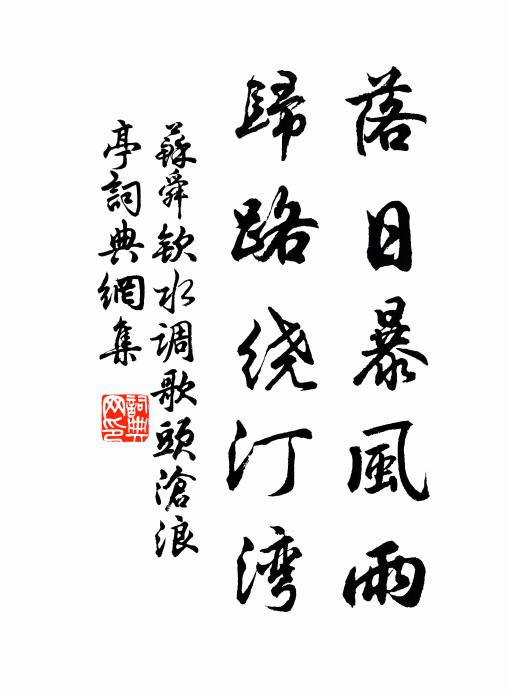 落日暴風雨
歸路绕汀湾
蘇舜钦水调歌頭滄浪
亭詞典網集
詞典網印